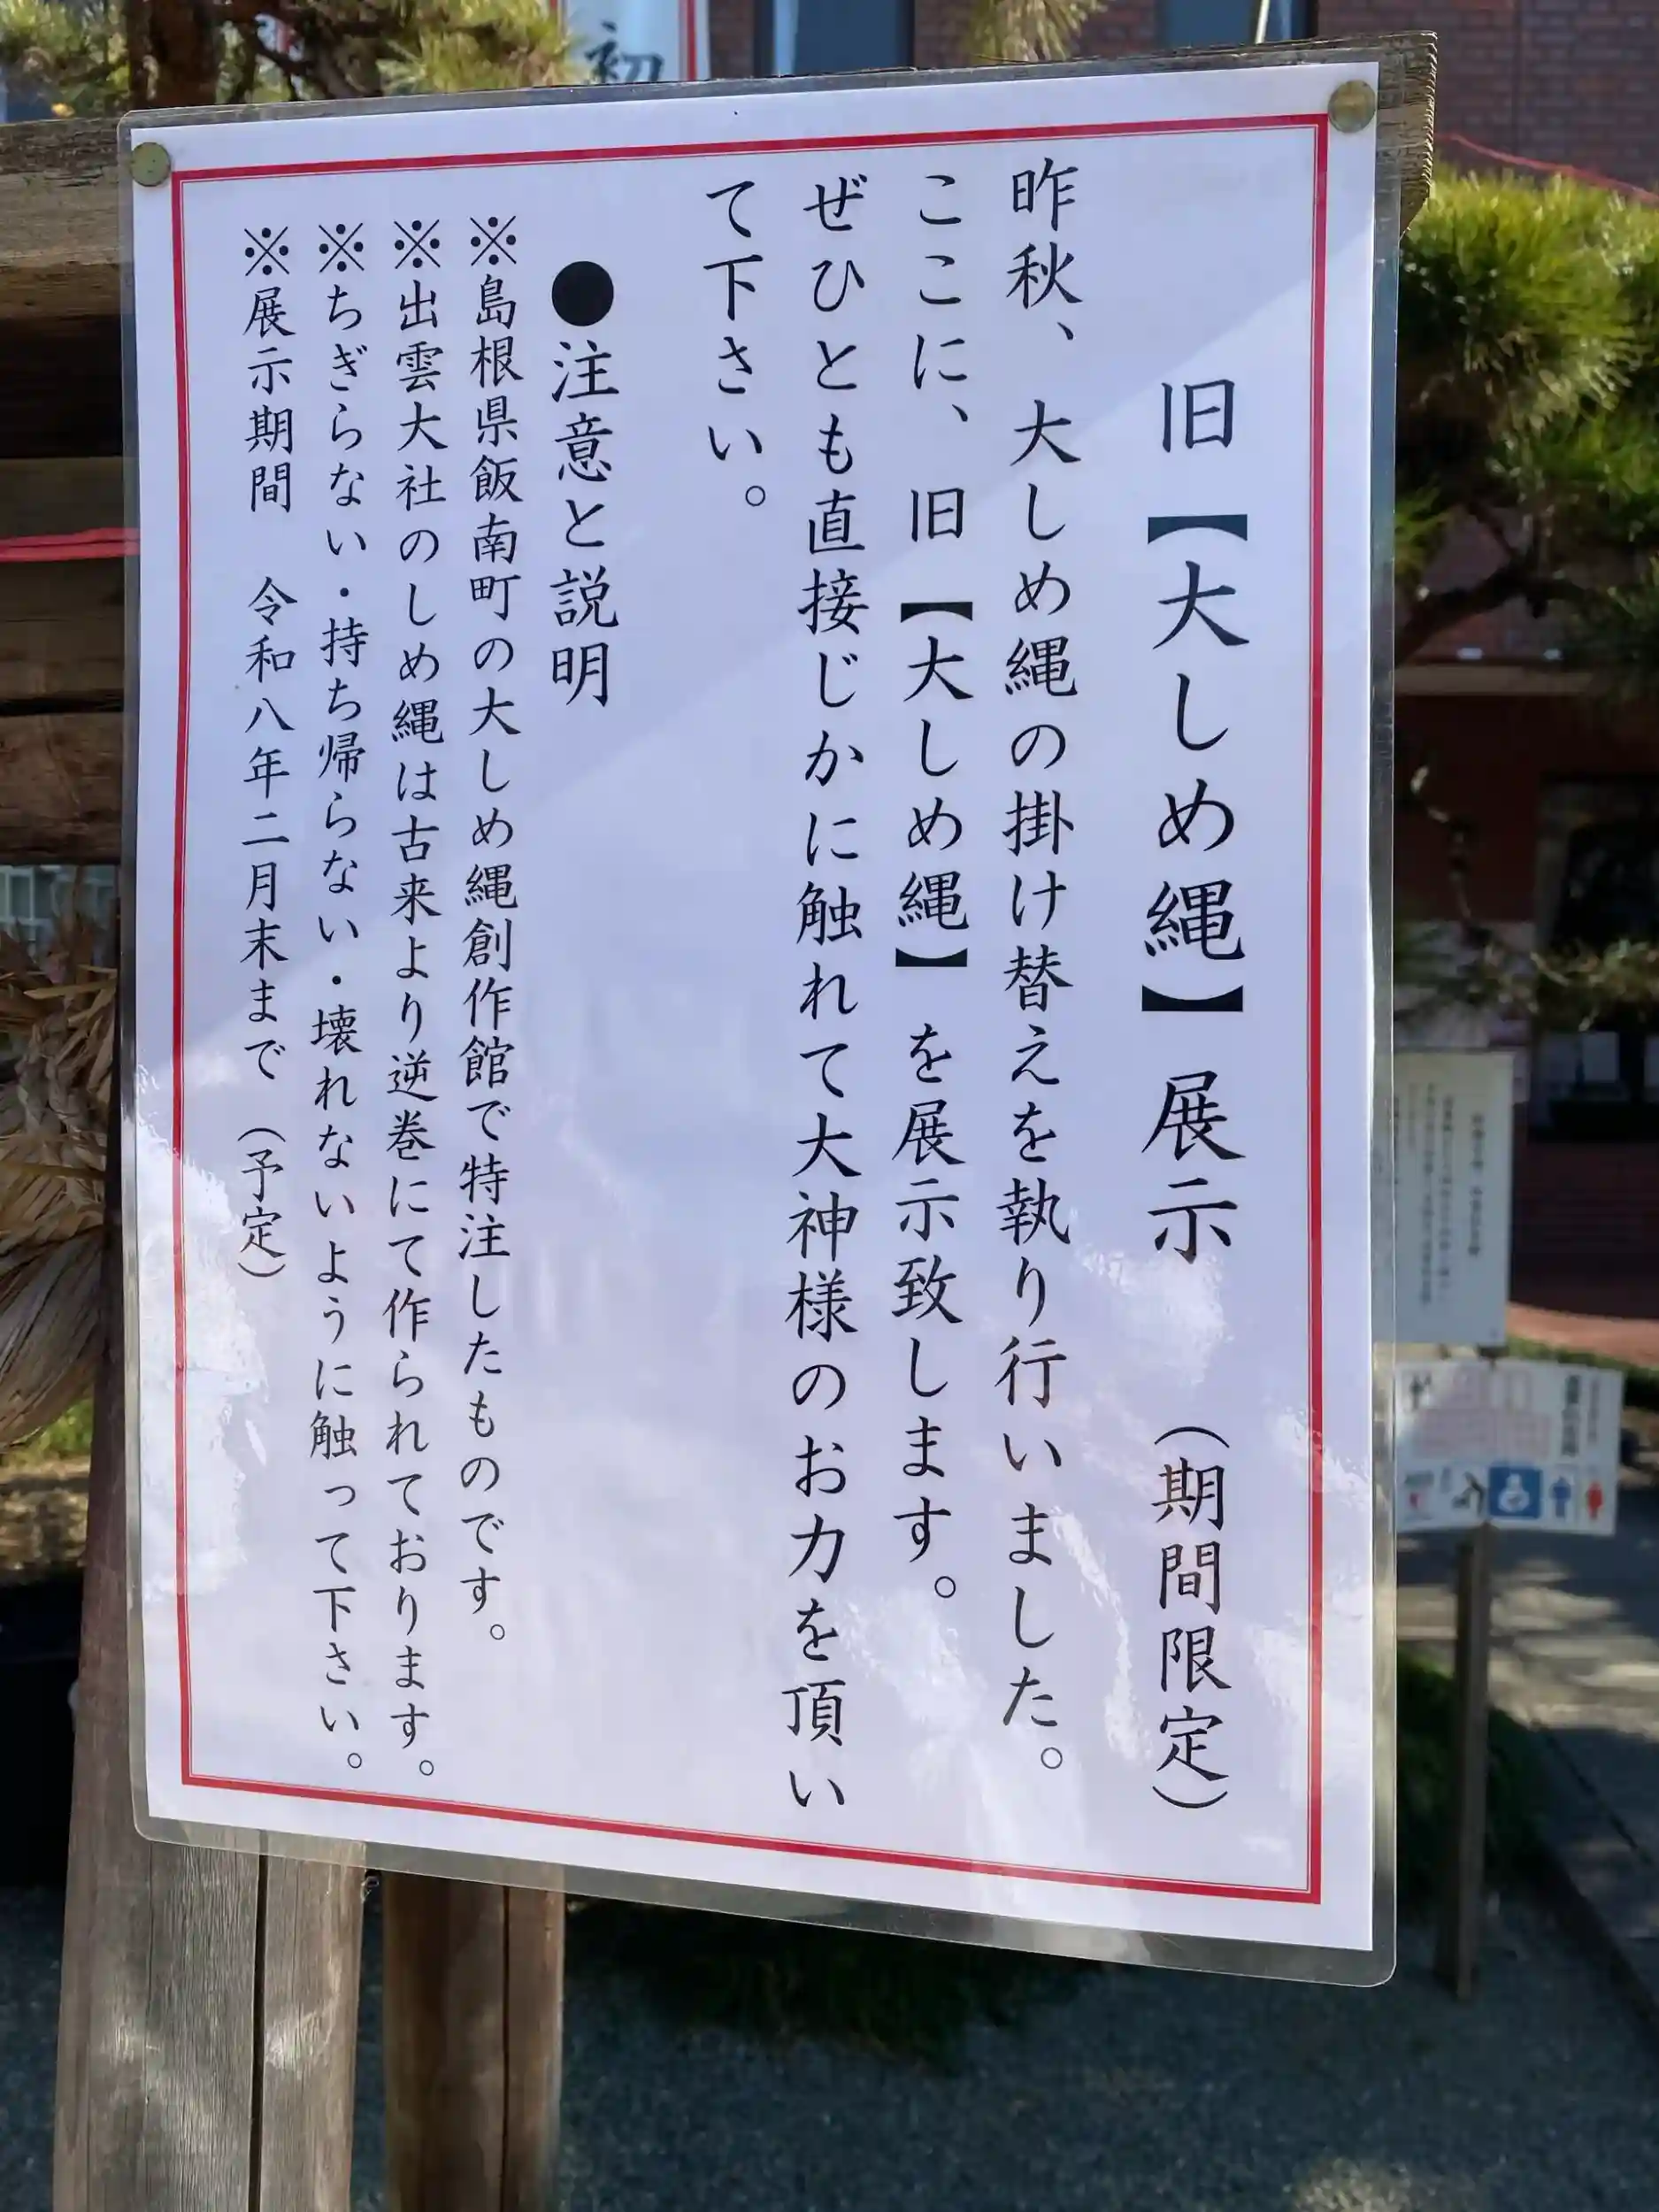 旧【大しめ縄】展示　（期間限定）
昨秋、大しめ縄の掛け替えを執り行いました。
ここに、旧【大しめ縄】を展示致します。
ぜひとも直接じかに触れて大神様のお力を頂い
て下さい。
●注意と説明
※島根県飯南町の大しめ縄創作館で特注したものです。
※出雲大社のしめ縄は古来より逆巻にて作られております。
※ちぎらない・持ち帰らない・壊れないように触って下さい。
※展示期間　令和八年二月末まで（予定）
初